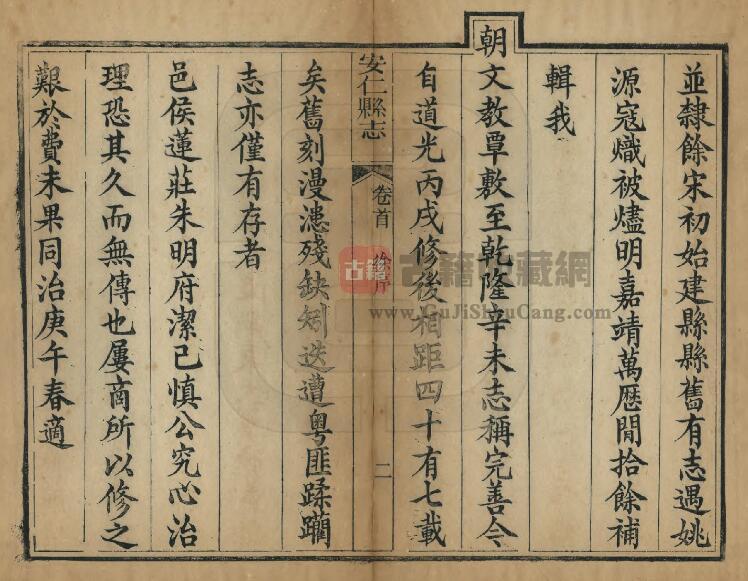 並隸餘宋初始建縣縣舊有志遇姚
源寇熾被燼明嘉靖萬歷間拾餘補
輯我
朝文教覃敷至乾隆辛未志稱完善今
自道光丙戌修後相距四十有七載
安仁縣志
卷首
徐序
二
矣舊刻漫漶殘缺矧迭遭粵匪蹂躪
志亦僅有存者
邑侯蓮莊朱明府潔己慎公究心治
理恐其久而無傳也屢商所以修之
艱於費未果同治庚午春適
古籍
古籍收藏網
www.GuJiShouCang.com